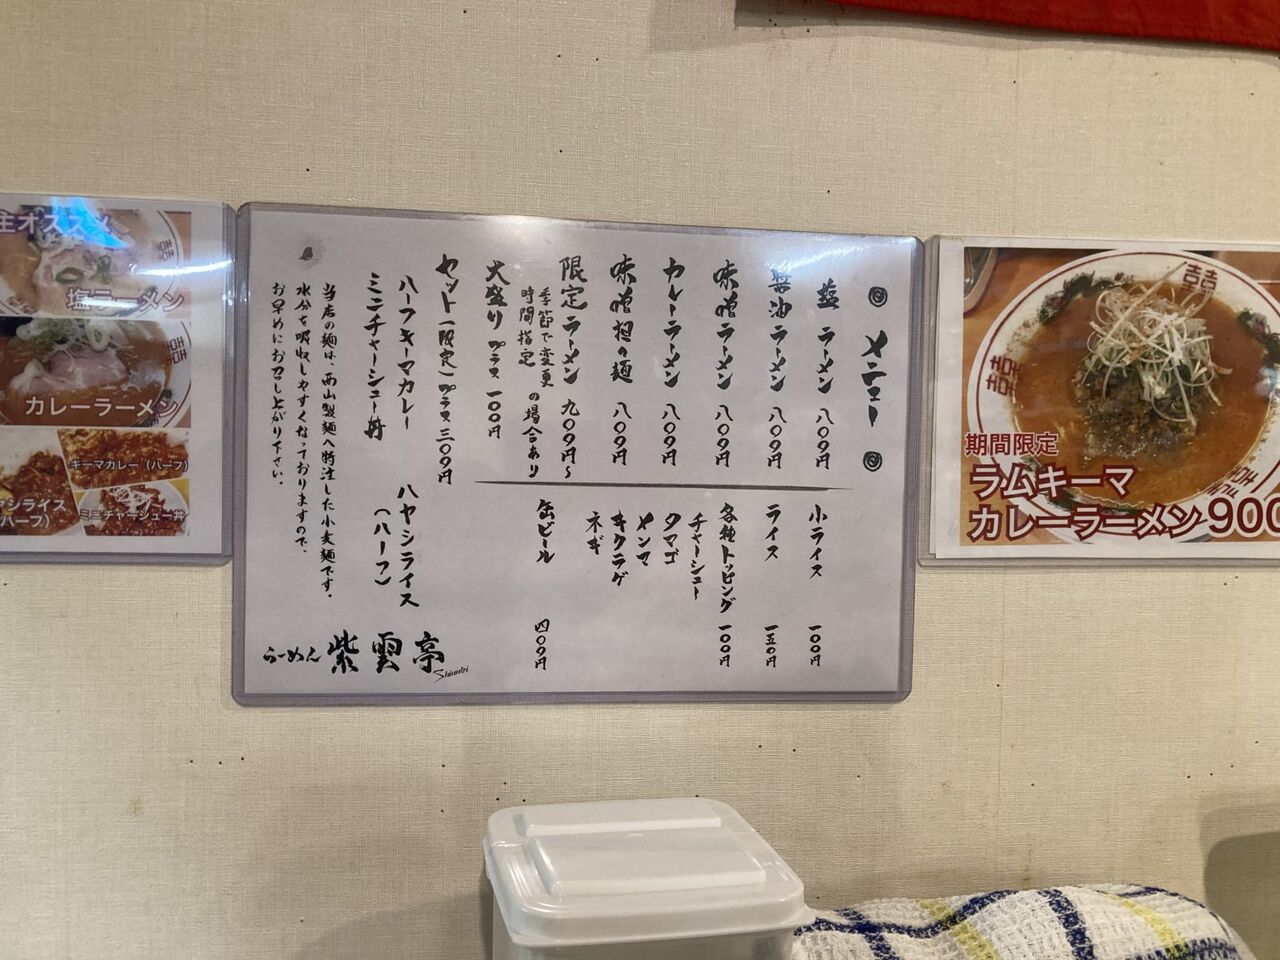 ◎ メニュー ◎
塩ラーメン 八〇〇円
醤油ラーメン 八〇〇円
味噌ラーメン 八〇〇円
カレーラーメン 八〇〇円
味噌担々麺 八〇〇円
限定ラーメン 九〇〇円〜
季節で変更
時間指定
の場合あり
大盛り プラス 一〇〇円
セット(限定) プラス 三〇〇円
ハーフキーマカレー ハヤシライス
ミニチャーシュー丼 (ハーフ)
小ライス 一〇〇円
ライス 一五〇円
各種トッピング 一〇〇円
チャーシュー
タマゴ
メンマ
キクラゲ
ネギ
缶ビール 四〇〇円
当店の麺は、西山製麺へ特注した小麦麺です。
水分を吸収しやすくなっておりますので、
お早めにお召し上がり下さい。
らーめん 紫雲亭
主オススメ
塩ラーメン
カレーラーメン
キーマカレー(ハーフ)
ヤシライス
ハーフ)
ミニチャーシュー丼
期間限定
ラムキーマ
カレーラーメン 900